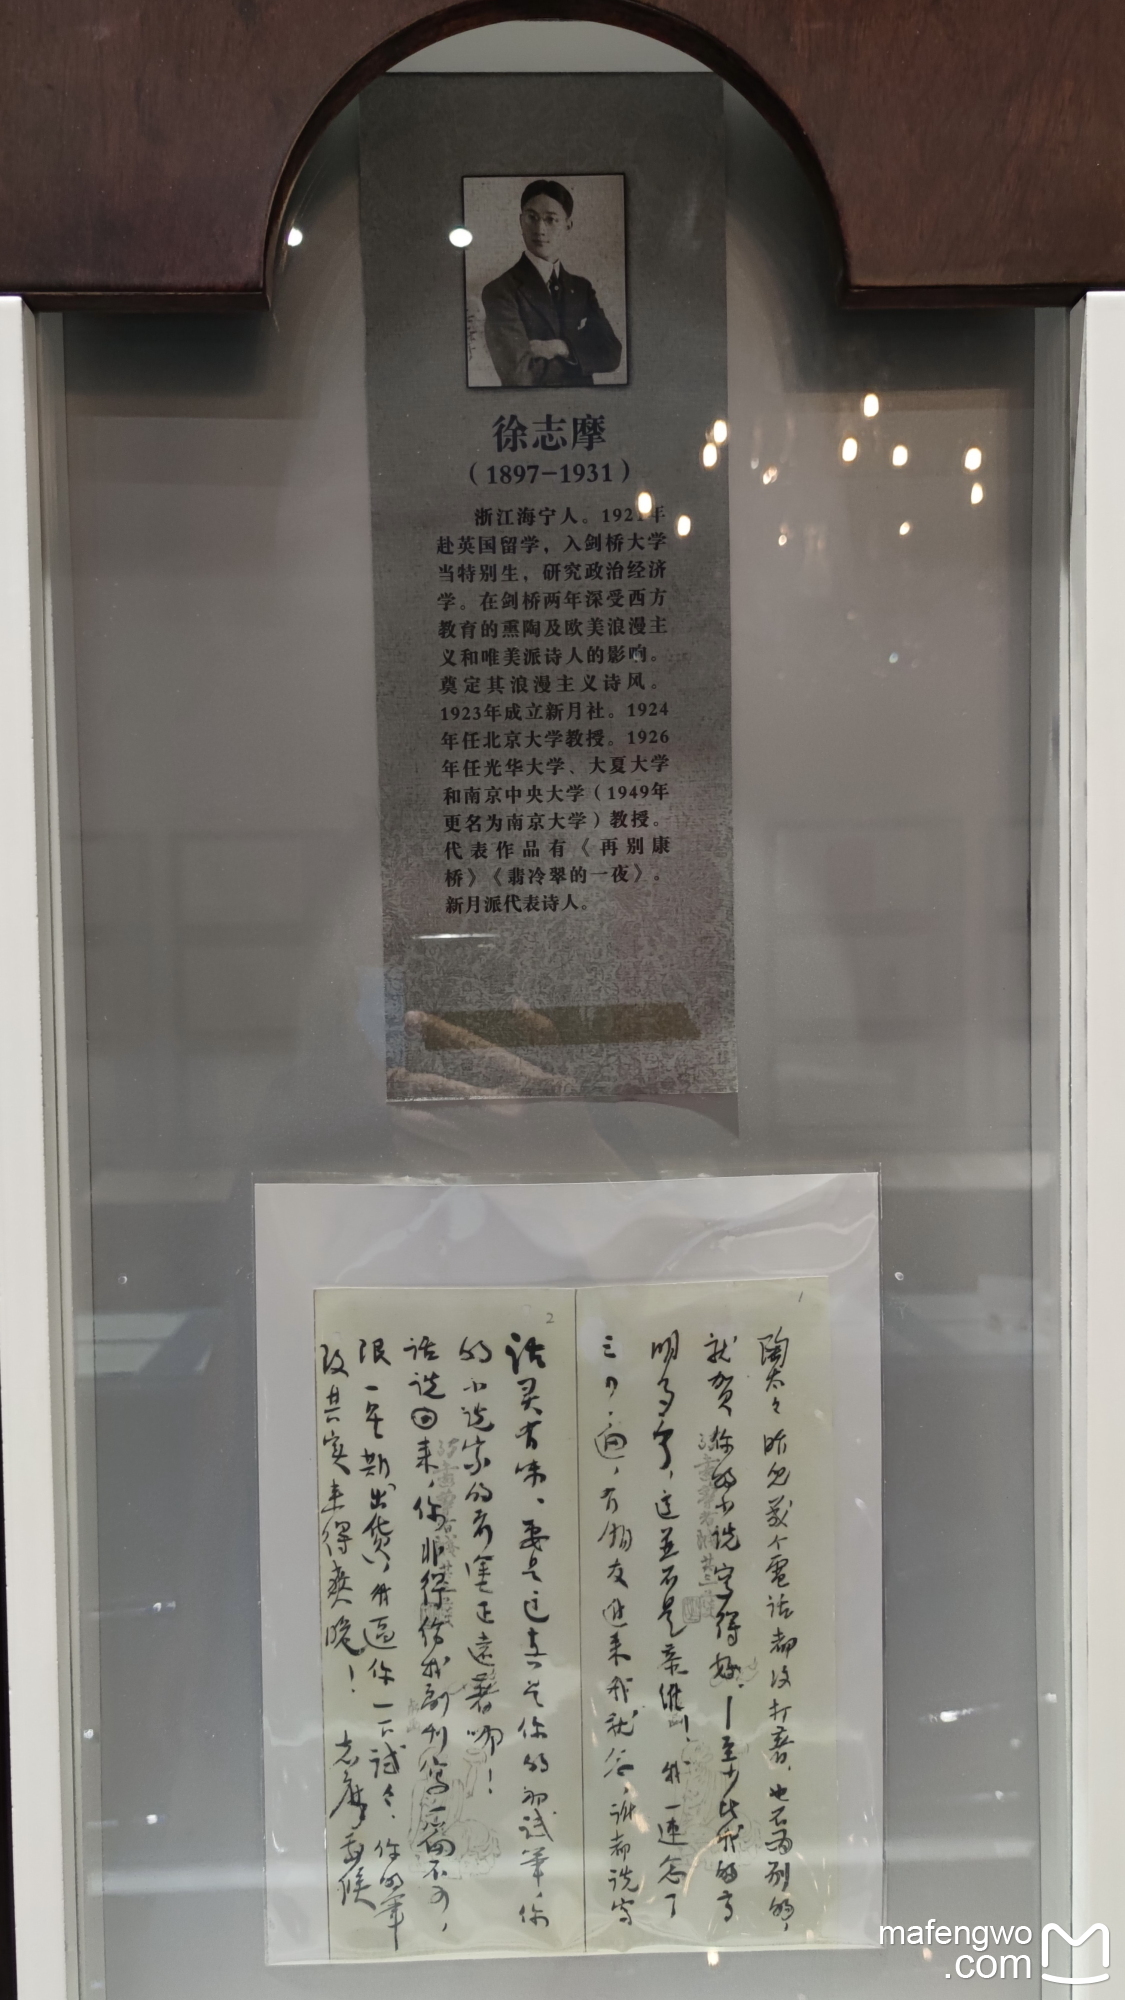 徐志摩
（1897-1931）
浙江海宁人。1921年
赴英国留学，入剑桥大学
当特别生，研究政治经济
学。在剑桥两年深受西方
教育的熏陶及欧美浪漫主
义和唯美派诗人的影响。
奠定其浪漫主义诗风。
1923年成立新月社。1924
年任北京大学教授。1926
年任光华大学、大夏大学
和南京中央大学（1949年
更名为南京大学）教授。
代表作品有《再别康
桥》《翡冷翠的一夜》。
新月派代表诗人。
1
陶太々昨儿几个電话都没打着，也不为别的，
就贺你的小说写得好，—至少比我的高
明多了，这並不是恭维，我一連念了
三遍，有朋友进来我就念，谁都说写
2
话灵有味。要是这真是你的初试笔，你
的小说家的前途正遠着哪！
话说回来，你非得给我副刊写不可，
限一星期出货，逼你一下试々，你的笔
其实来得 志摩候
mafengwo
.com